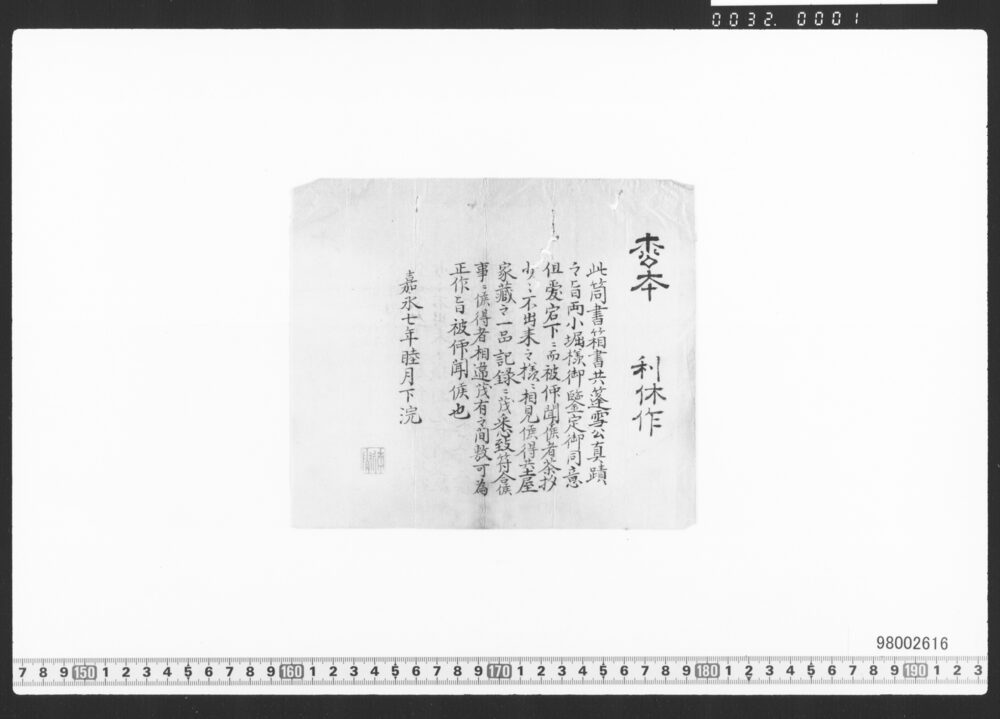 0032. 0001
杢本 利休作
此筒書箱書共蓬雪公真蹟
之旨両小堀様御鑑定御同意
但處宕下ニ而被仰聞候者茶抄
少々不出来之様ニ相見候得共土屋
家藏之一品記録ニ茂悉致符合候
事ニ候得者相違茂有之間敷可為
正作旨被仰聞候也
嘉永七年睦月下浣
98002616
7 8 9 150 1 2 3 4 5 6 7 8 9 160 1 2 3 4 5 6 7 8 9 170 1 2 3 4 5 6 7 8 9 180 1 2 3 4 5 6 7 8 9 190 1 2 3